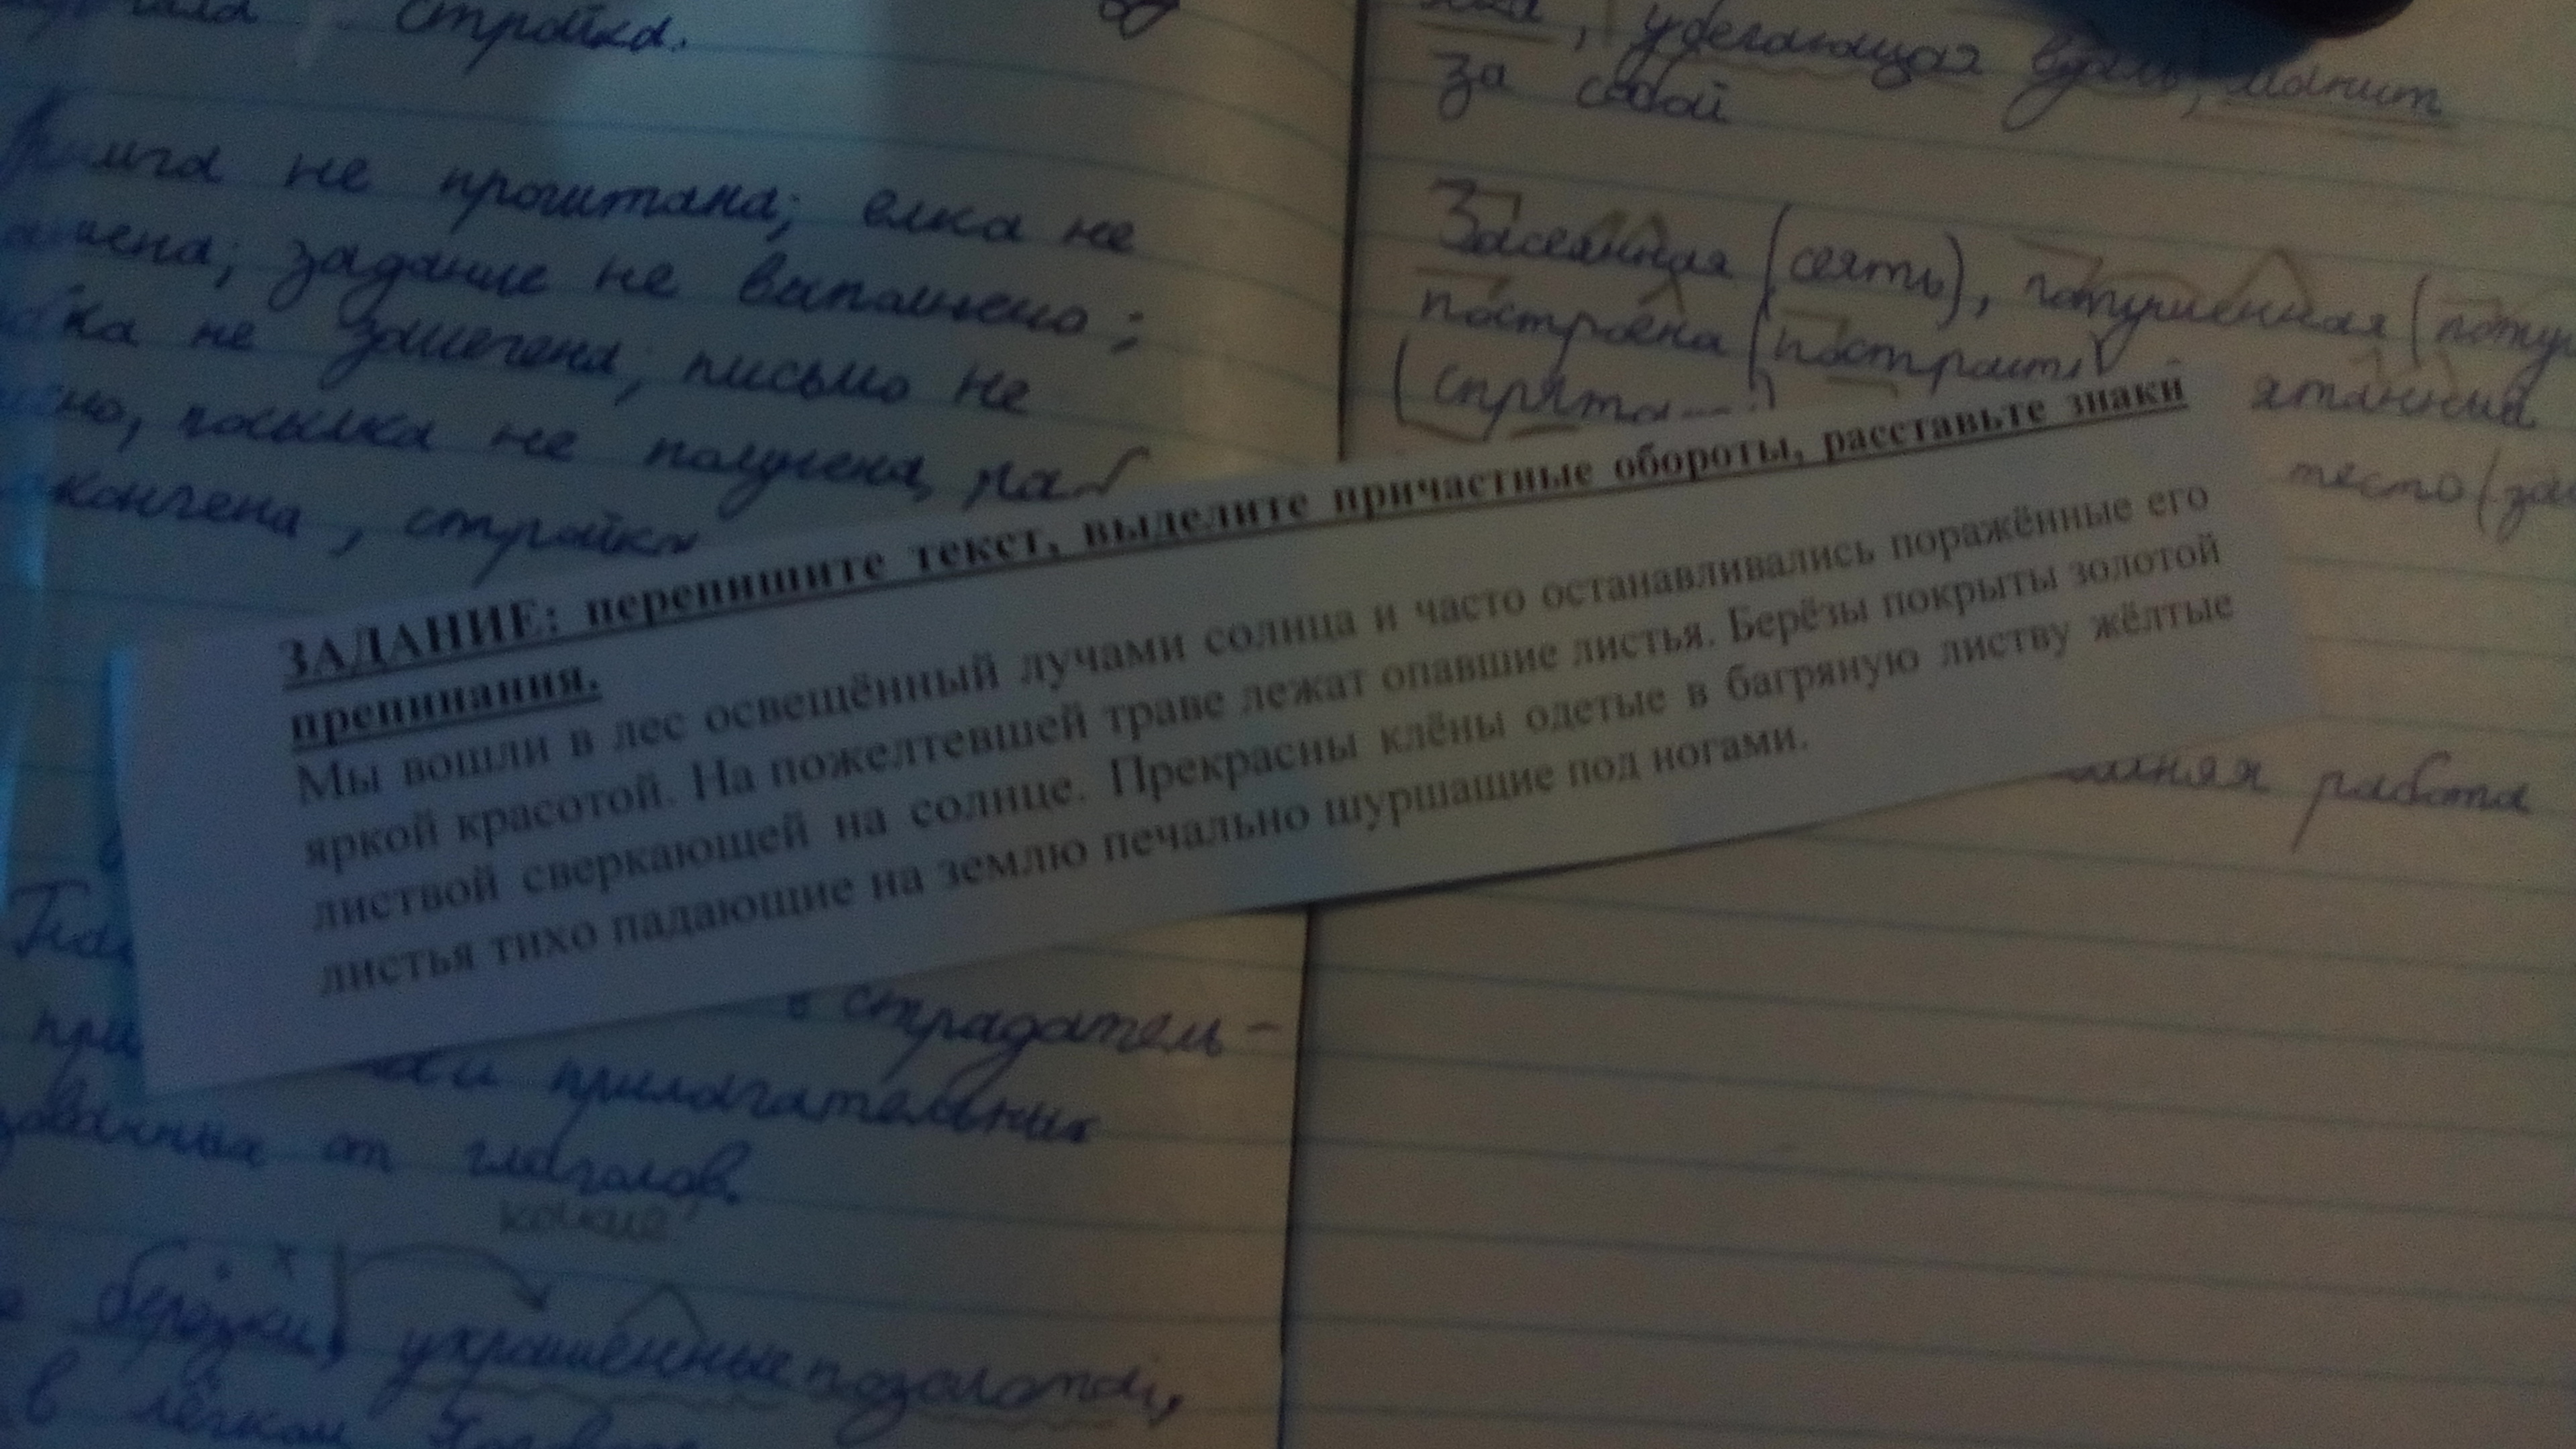 стройка.
не прочитана; елка не
задание не выполнено;
не зашегена; письмо не
посылка не получена,
стройка
, убегающая вдаль, манит
за собой
Засеянная (сеять), потушенная
построена (построить)
тесто
работа
ЗАДАНИЕ: перепишите текст, выделите причастные обороты, расставьте знаки
препинания.
Мы вошли в лес освещённый лучами солнца и часто останавливались поражённые его
яркой красотой. На пожелтевшей траве лежат опавшие листья. Берёзы покрыты золотой
листвой сверкающей на солнце. Прекрасны клёны одетые в багряную листву жёлтые
листья тихо падающие на землю печально шуршащие под ногами.
в страдатель-
прилагательных
от глаголов.
какие
берёзки, украшенные позолотой,
в лёгком